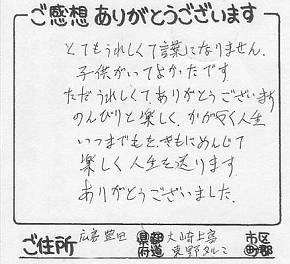 ご感想 ありがとうございます
とてもうれしくて言葉になりません.
子供がいてよかったです
ただうれしくて,ありがとうございます
のんびりと楽しく,かが尽く人生
いつまでもを,きもにめんじて
楽しく人生を送ります
ありがとうございました
ご住所 広島 豊田 都道府県 大崎上島 東野 市区町郡